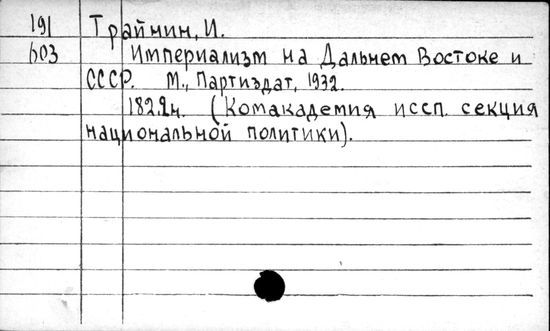 191 Трайнин, И.
603 Империализм на Дальнем Востоке и
СССР. М., Партиздат, 1932.
182.2н. (Комакадемия иссп. секция
национальной политики).